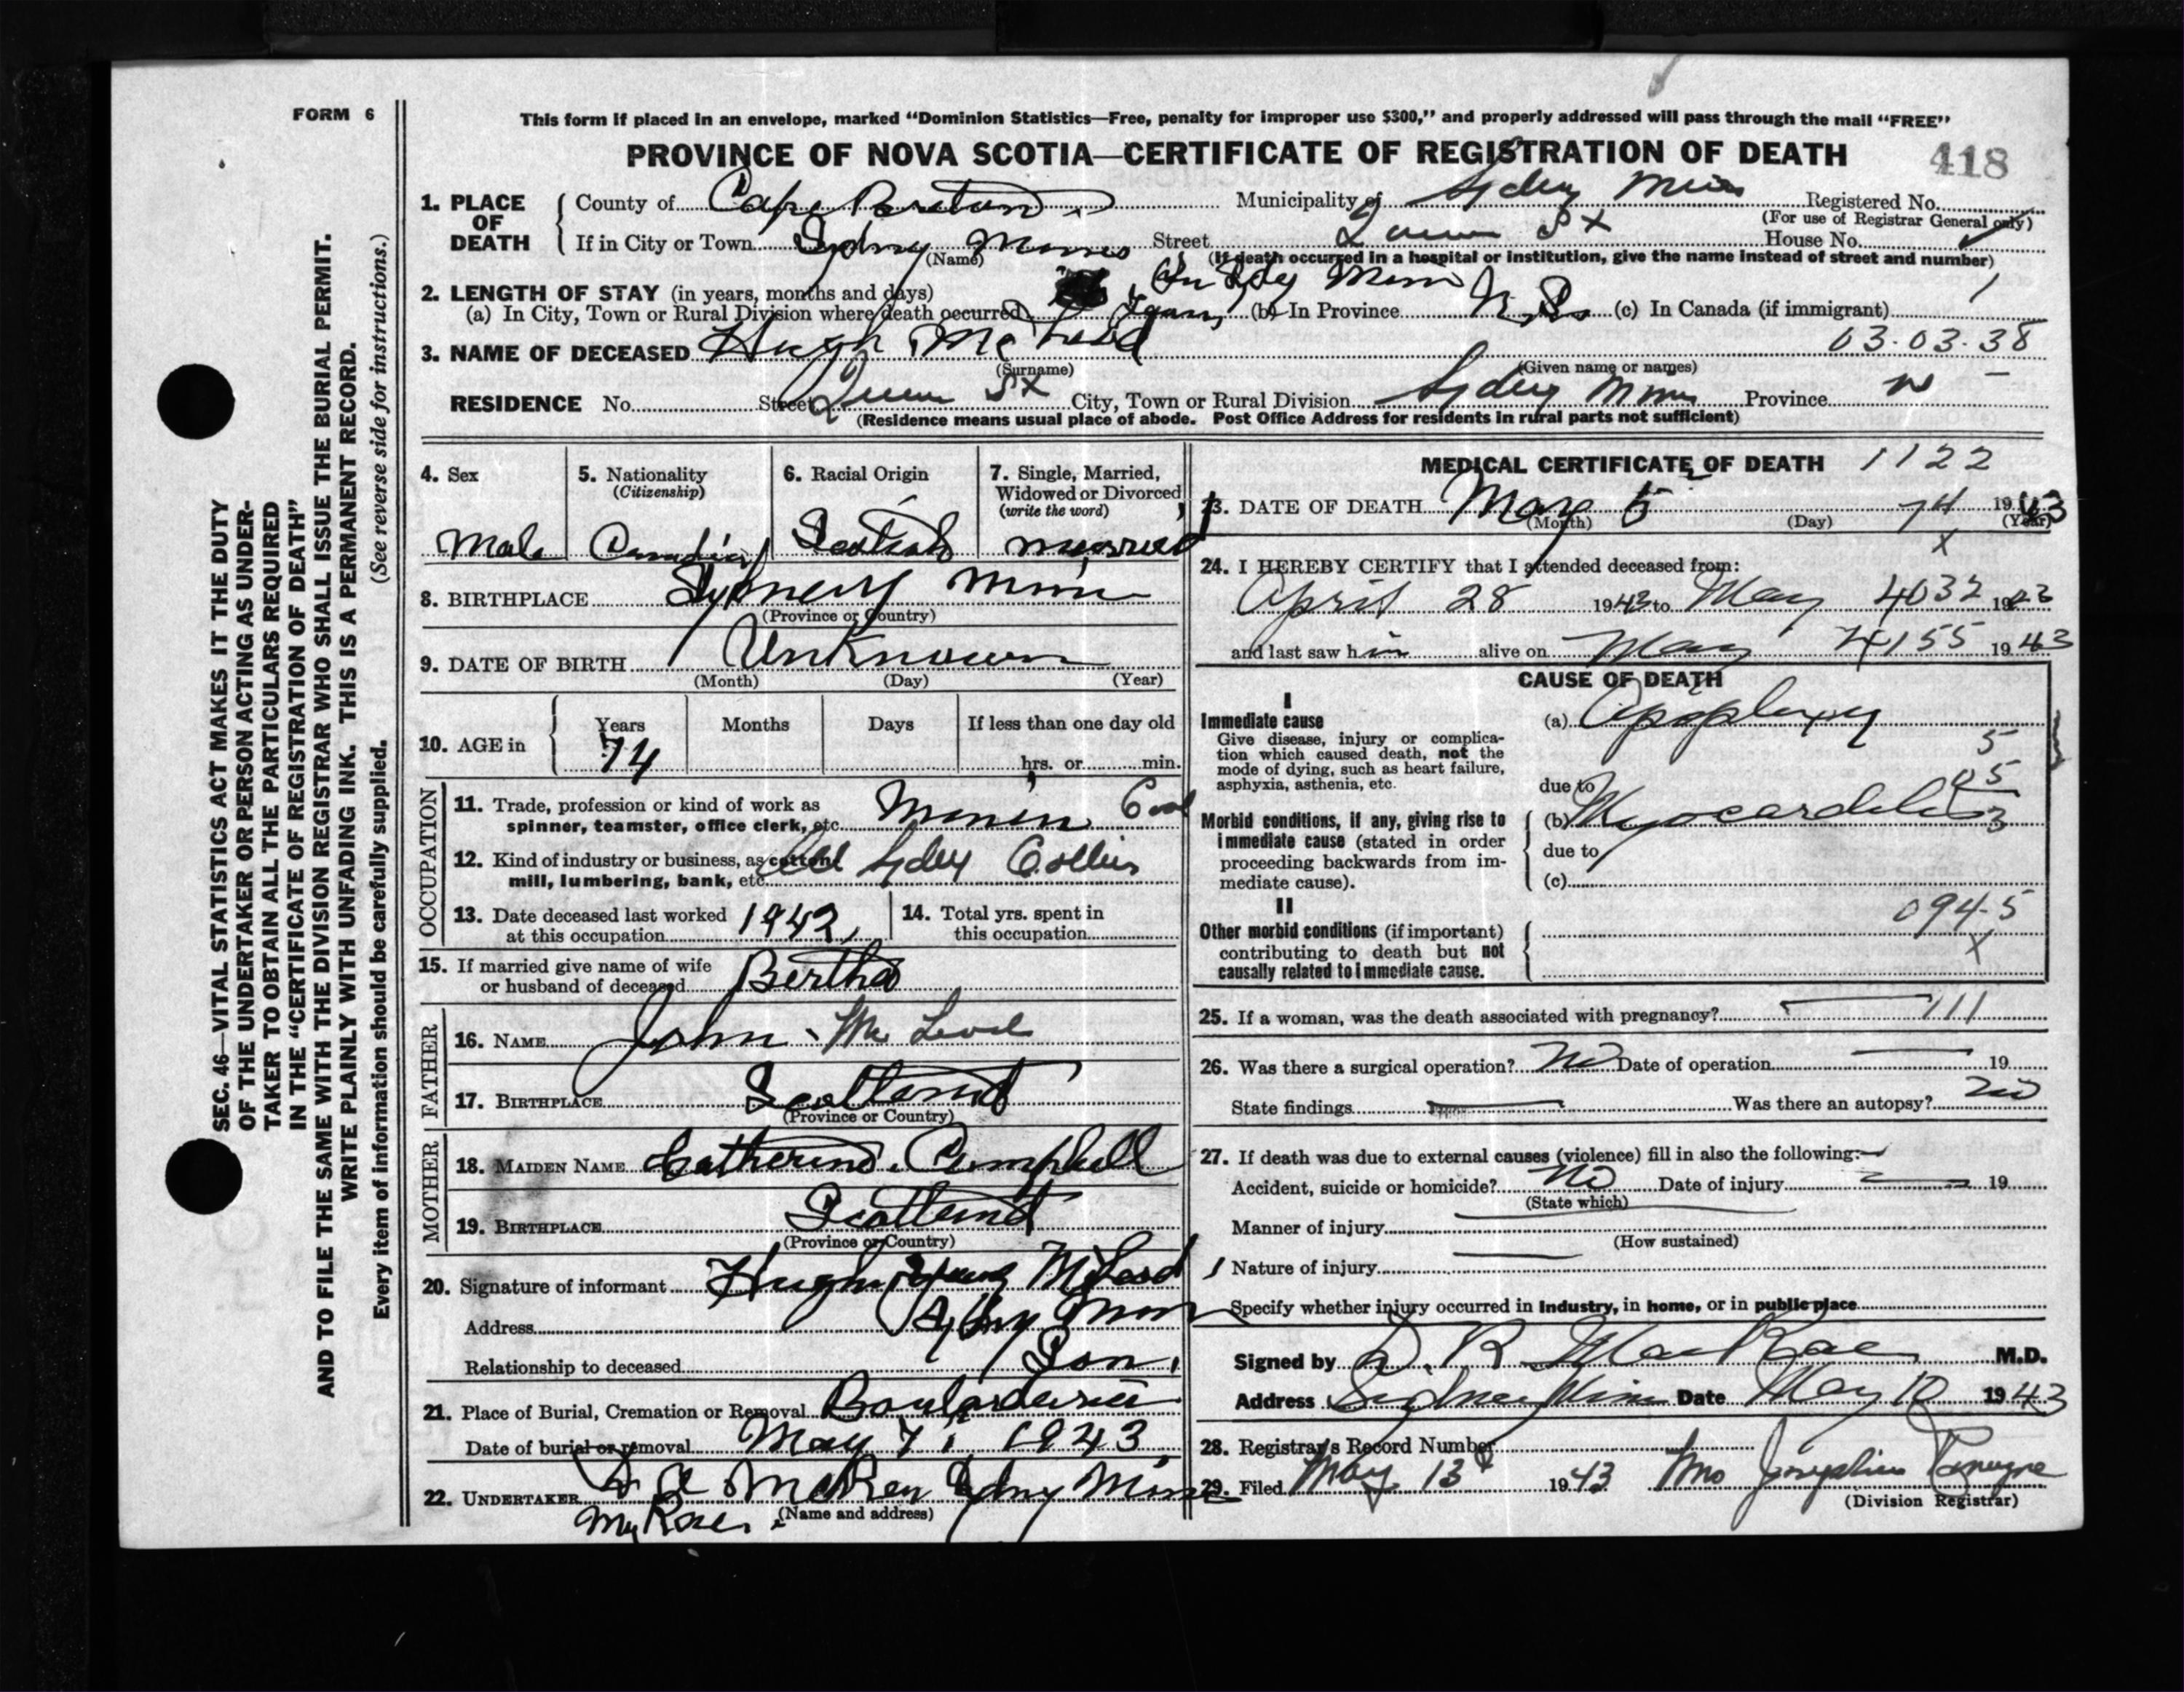 FORM 6
This form if placed in an envelope, marked “Dominion Statistics—Free, penalty for improper use $300,” and properly addressed will pass through the mail “FREE”
PROVINCE OF NOVA SCOTIA—CERTIFICATE OF REGISTRATION OF DEATH
418
1. PLACE OF DEATH
County of Cape Breton Municipality of Sydney Mines Registered No.
(For use of Registrar General only)
If in City or Town Sydney Mines Street Queen St House No.
(Name) (If death occurred in a hospital or institution, give the name instead of street and number)
2. LENGTH OF STAY (in years, months and days)
(a) In City, Town or Rural Division where death occurred (b) In Province N.S. (c) In Canada (if immigrant)
03.03.38
3. NAME OF DECEASED Hugh McLeod
(Surname) (Given name or names)
RESIDENCE No. Street Queen St City, Town or Rural Division Sydney Mines Province N
(Residence means usual place of abode. Post Office Address for residents in rural parts not sufficient)
4. Sex
Male
5. Nationality
(Citizenship)
Canadian
6. Racial Origin
Scotish
7. Single, Married,
Widowed or Divorced
(write the word)
married
8. BIRTHPLACE Sydney Mines
(Province or Country)
9. DATE OF BIRTH Unknown
(Month) (Day) (Year)
10. AGE in
Years Months Days If less than one day old
74 hrs. or min.
OCCUPATION
11. Trade, profession or kind of work as
spinner, teamster, office clerk, etc.
12. Kind of industry or business, as cotton
mill, lumbering, bank, etc.
13. Date deceased last worked
at this occupation 1942
14. Total yrs. spent in
this occupation
15. If married give name of wife
or husband of deceased Bertha
FATHER
16. NAME John McLeod
17. BIRTHPLACE Scotland
(Province or Country)
MOTHER
18. MAIDEN NAME Catherine Campbell
19. BIRTHPLACE Scotland
(Province or Country)
20. Signature of informant Hugh McLeod
Address Sydney Mines
Relationship to deceased Son
21. Place of Burial, Cremation or Removal Boularderie
Date of burial or removal May 7, 1943
22. UNDERTAKER
(Name and address)
MEDICAL CERTIFICATE OF DEATH 1122
23. DATE OF DEATH May 5 74 1943
(Month) (Day) (Year)
X
24. I HEREBY CERTIFY that I attended deceased from:
April 28 1943 to May 4 032 1943
and last saw him alive on May 4 155 1943
CAUSE OF DEATH
I
Immediate cause
Give disease, injury or complica-
tion which caused death, not the
mode of dying, such as heart failure,
asphyxia, asthenia, etc.
(a) Apoplexy
5
due to 05
Morbid conditions, if any, giving rise to
immediate cause (stated in order
proceeding backwards from im-
mediate cause).
(b) Myocarditis 3
due to
(c)
II
Other morbid conditions (if important)
contributing to death but not
causally related to immediate cause.
094-5
X
25. If a woman, was the death associated with pregnancy? 111
26. Was there a surgical operation? No Date of operation 19
State findings Was there an autopsy? No
27. If death was due to external causes (violence) fill in also the following:
Accident, suicide or homicide? No Date of injury 19
(State which)
Manner of injury
(How sustained)
Nature of injury
Specify whether injury occurred in Industry, in home, or in public place
Signed by D. R. MacRae M.D.
Address Sydney Mines Date May 10 1943
28. Registrar's Record Number
29. Filed May 13 1943
(Division Registrar)
SEC. 46—VITAL STATISTICS ACT MAKES IT THE DUTY
OF THE UNDERTAKER OR PERSON ACTING AS UNDER-
TAKER TO OBTAIN ALL THE PARTICULARS REQUIRED
IN THE “CERTIFICATE OF REGISTRATION OF DEATH”
AND TO FILE THE SAME WITH THE DIVISION REGISTRAR WHO SHALL ISSUE THE BURIAL PERMIT.
WRITE PLAINLY WITH UNFADING INK. THIS IS A PERMANENT RECORD.
Every item of information should be carefully supplied. (See reverse side for instructions.)